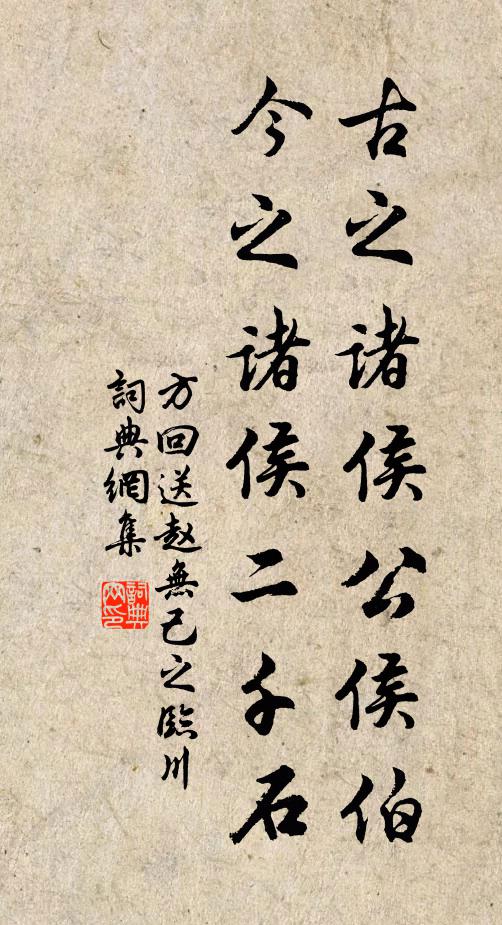 古之诸侯公侯伯
今之诸侯二千石
方回送赵無己之臨川
詞典網集
詞典網印